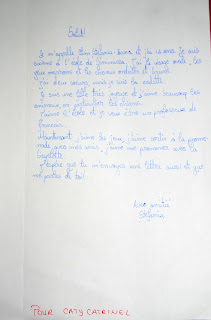 Je m'appelle Elen Stefania-Ioana et j'ai 12 ans. Je suis
élève à l'école de . J'ai le visage ovale, les
yeux marrons et les cheveux ondulés et
J'ai deux sœurs, mais je suis la cadette.
Je suis une fille très joyeuse et j'aime beaucoup les
animaux, en particulier les chiens.
J'aime l'école et je veux être un professeur de
français.
Maintenant j'aime les jeux, j'aime sortir à la prome-
nade avec mes amis, j'aime me promener avec la
bicyclette.
J'espère que tu m'envoyes une lettre aussi et que
me parles de toi!
Avec amitié
Stefania
POUR CATY CATRINEL